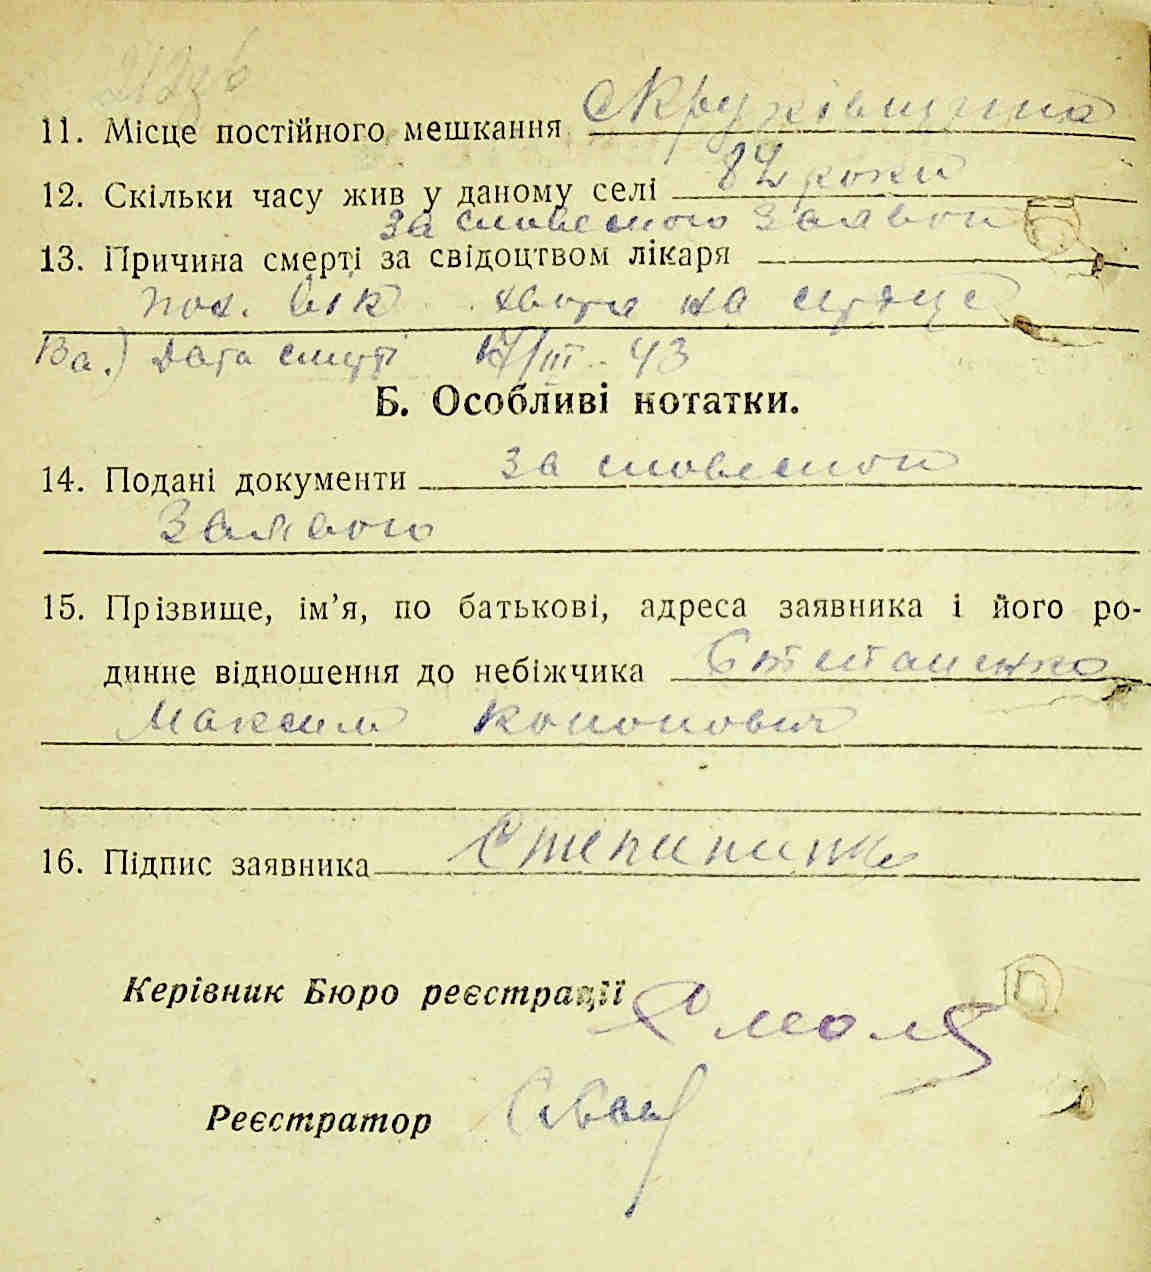 11. Місце постійного мешкання Скружківщина
12. Скільки часу жив у даному селі 82 роки
за словесною заявою
13. Причина смерті за свідоцтвом лікаря
пох. вік хвора на сердце
13а.) Дата смерті 17/III 43
Б. Особливі нотатки.
14. Подані документи за словесною
заявою
15. Прізвище, ім’я, по батькові, адреса заявника і його ро-
динне відношення до небіжчика Степаненко
Максим Кононович
16. Підпис заявника Степаненко
Керівник Бюро реєстрації
Реєстратор